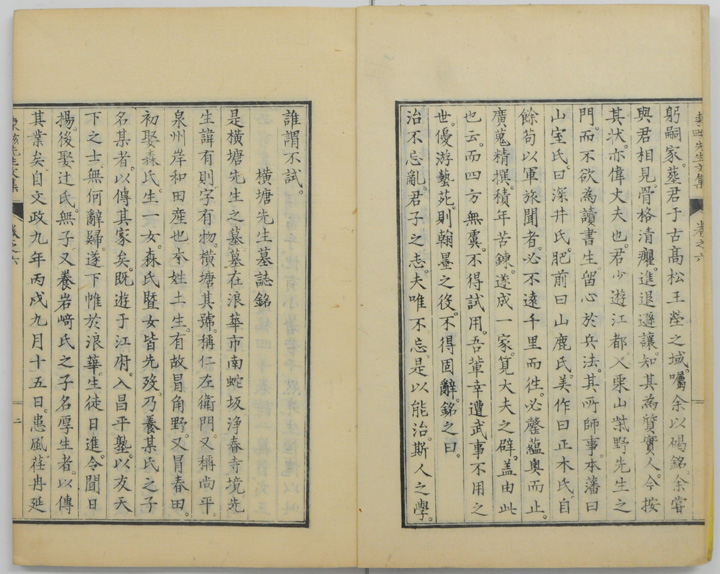 躬嗣家葬君于古高松王塋之域囑余以碣銘余嘗
與君相見骨格清癯進退遜讓知其為篤實人今按
其狀亦偉丈夫也君少遊江都入栗山紫野先生之
門而不欲為讀書生留心於兵法其所師事本藩曰
山室氏曰深井氏肥前曰山鹿氏美作曰正木氏自
餘苟以軍旅聞者必不遠千里而徃必鏧蘊奧而止
廣蒐精撰積年苦鍊遂成一家寬大夫之辟蓋由此
也云而四方無虞不得試用吾輩幸遭武事不用之
世優游藝苑則翰墨之役不得固辭銘之曰
治不忘亂君子之志夫唯不忘是以能治斯人之學
誰謂不試
橫塘先生墓誌銘
是橫塘先生之墓墓在浪華市南蛇坂浄春寺境先
生諱有則字有物橫塘其號稱仁左衛門又稱尚平
泉州岸和田産也本姓土生有故冒角野又冒春田
初娶森氏生一女森氏暨女皆先歿乃養某氏之子
名某者以傳其家矣既遊于江府入昌平塾以友天
下之士無何辭歸遂下帷於浪華生徒日進令聞日
揚後娶辻氏無子又養岩﨑氏之子名厚生者以傳
其業矣自文政九年丙戌九月十五日患風荏苒延
卷之六
卷之六
二